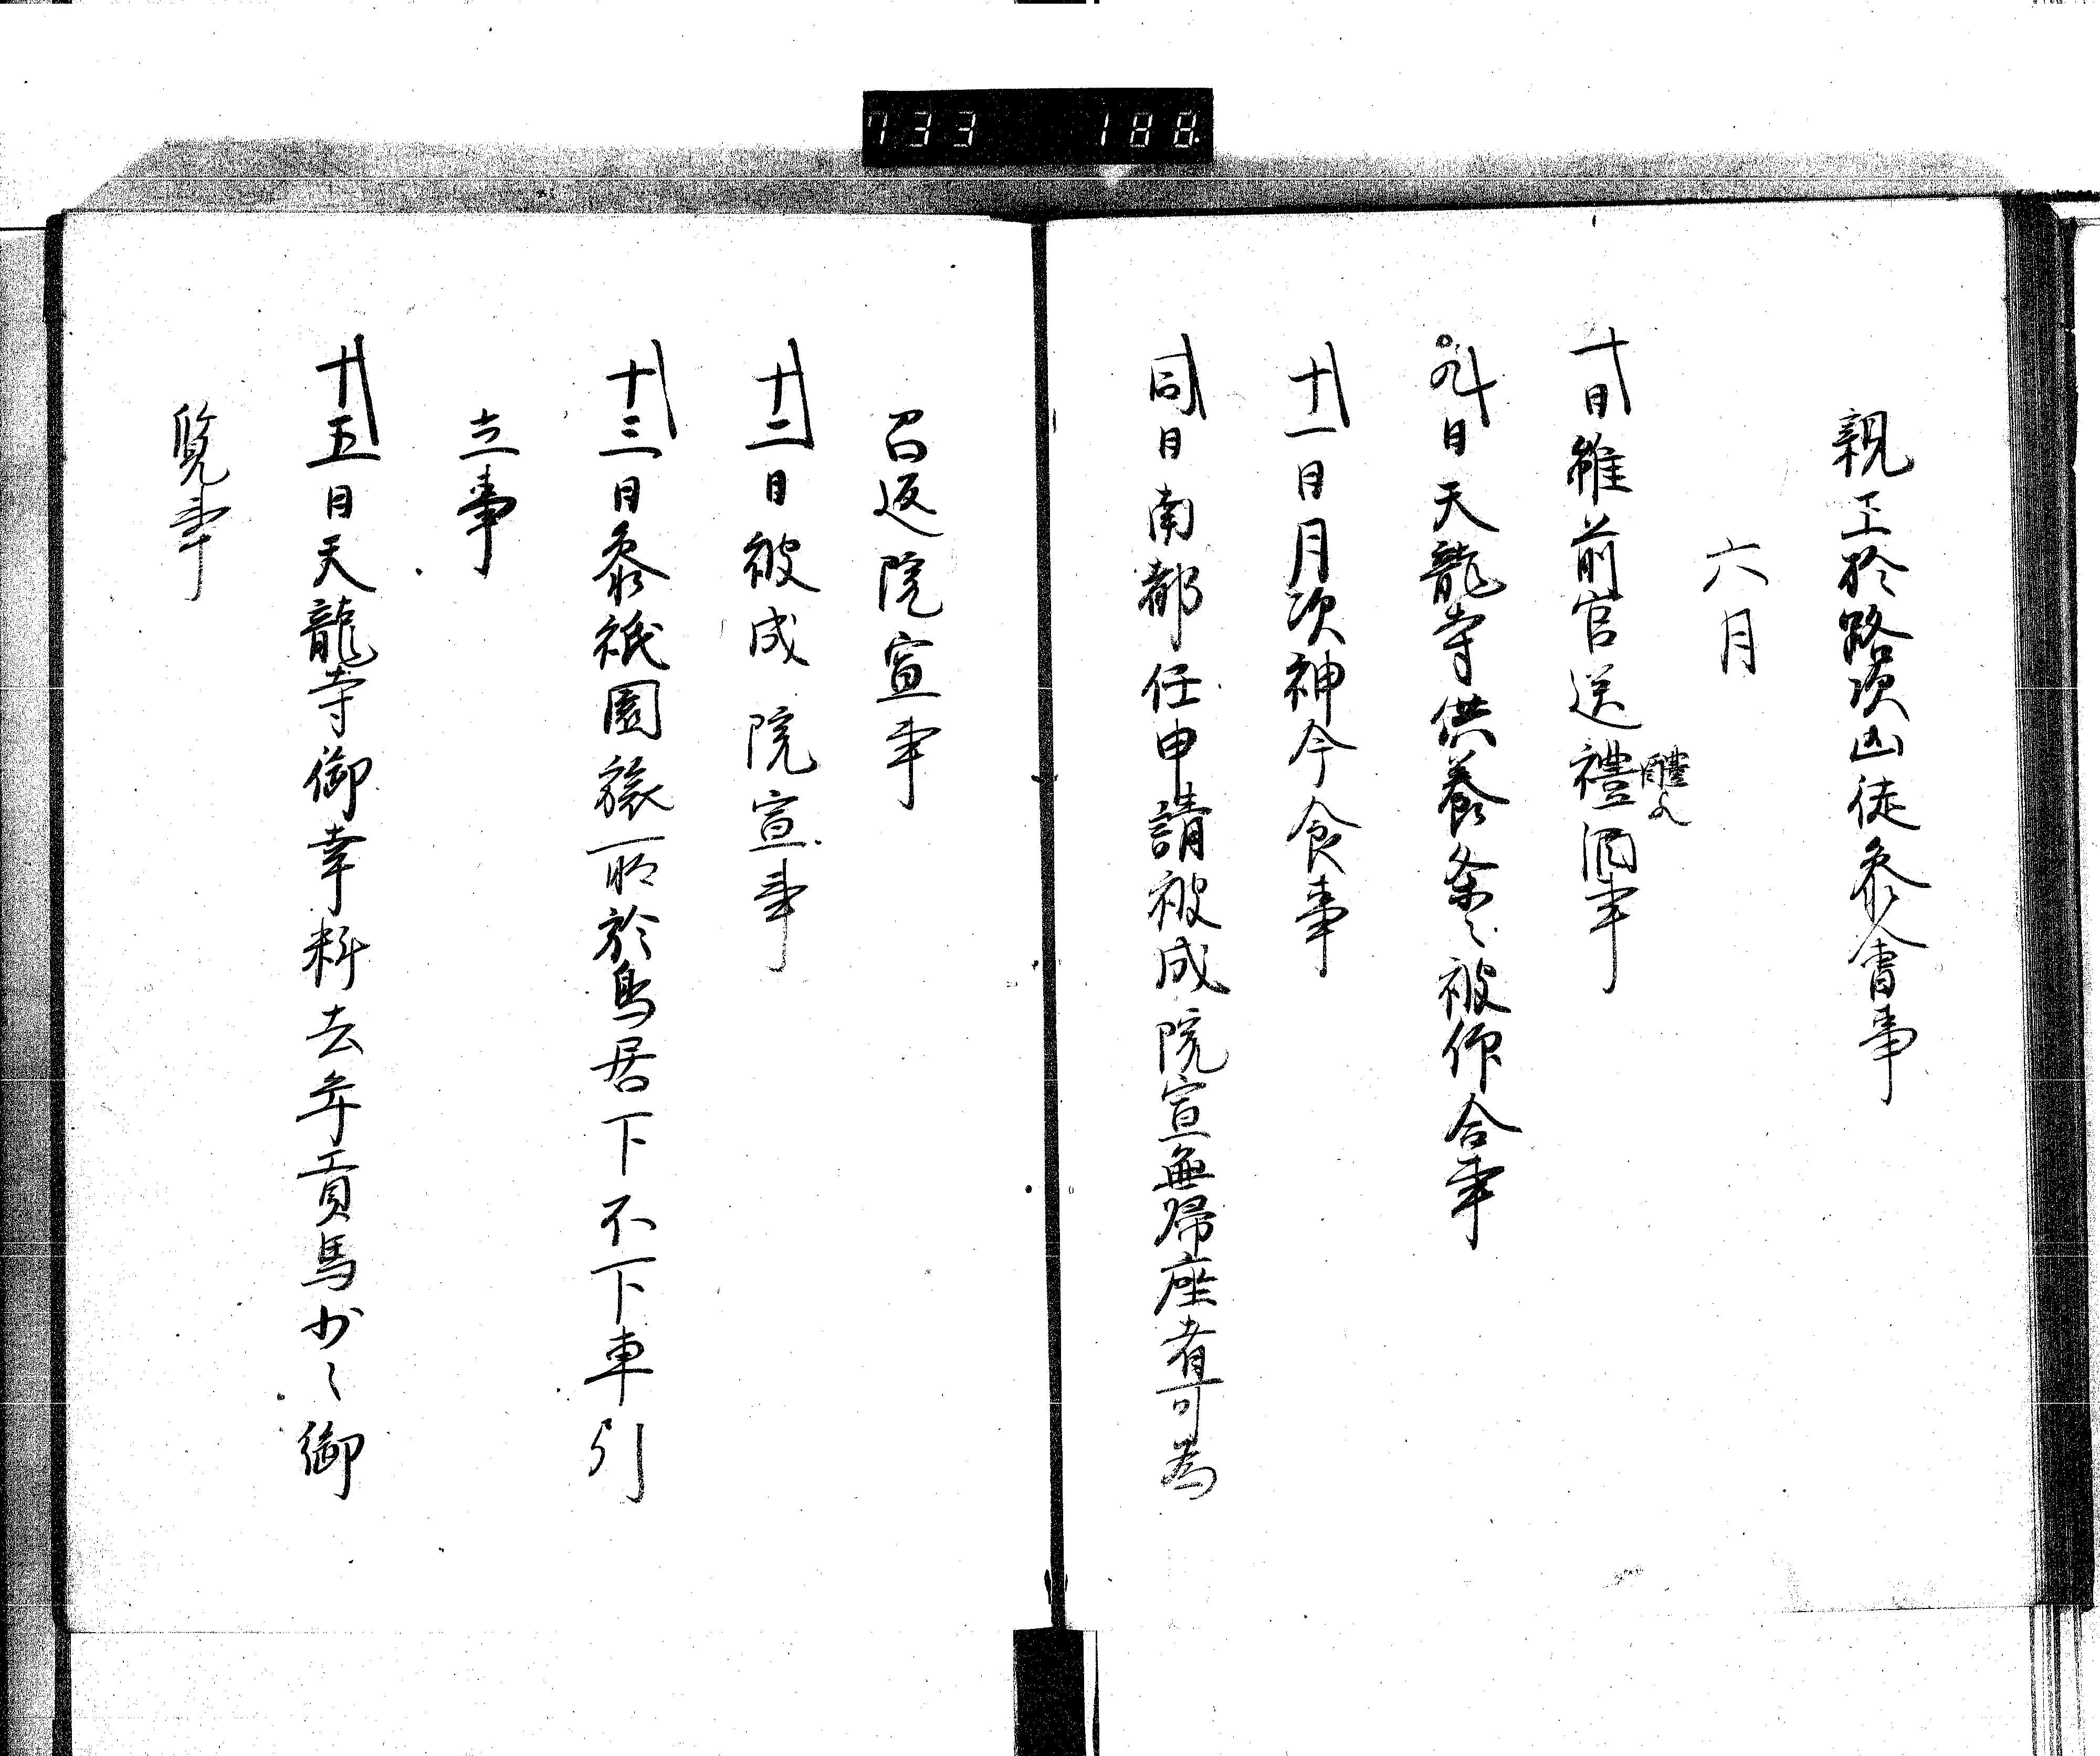 733 188
親王於路頭山徒参會事
六月
一日雖前官送禮酒事
醴歟
九日天龍寺供養条々被仰合事
十一日月次神今食事
同日南都任申請被成院宣無帰座者可為
召返院宣事
十二日被成院宣事
十三日参祇園旅所於鳥居下不下車引
立事
十五日天龍寺御幸料去年貢馬少々御
覧事